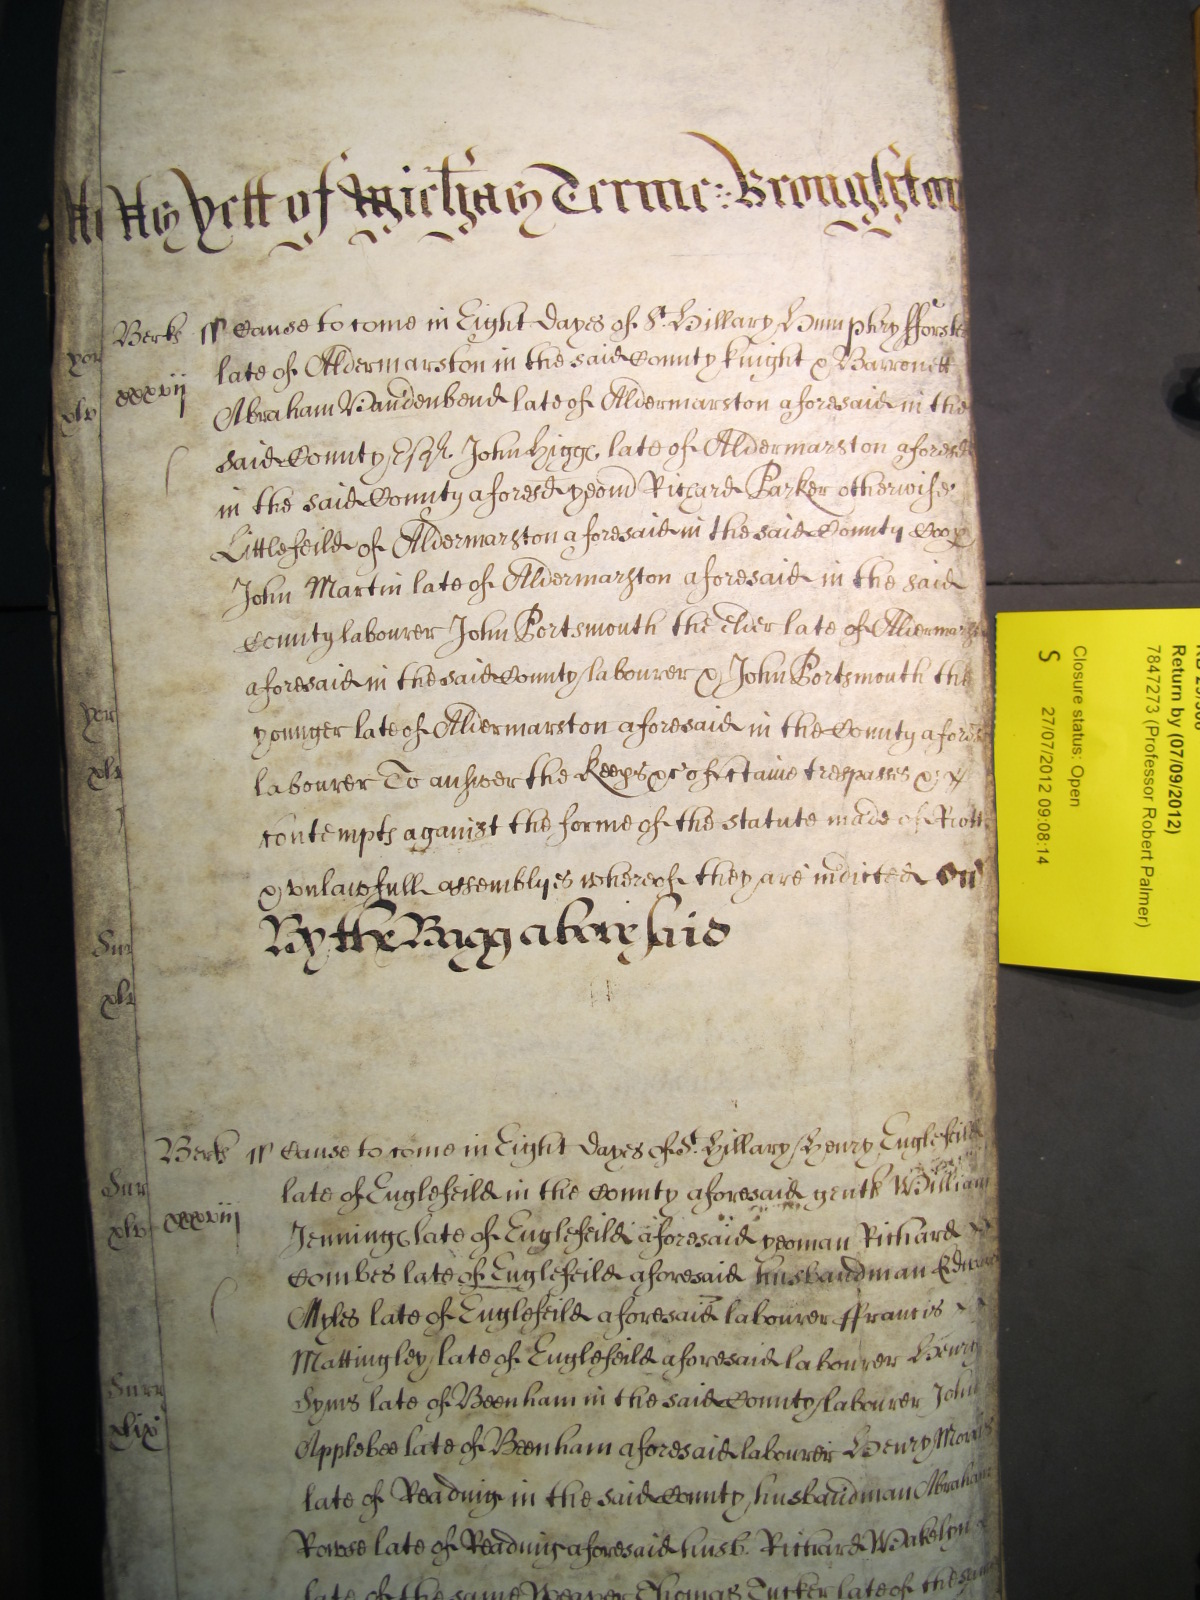 Yett of Michas Terme: Broughton
Berks ss Cause to come in Eight dayes of St. Hillary Humphry fforst
xxxvij late of Aldermarston in the said County knight & Barronett
Abraham Vandenbend late of Aldermarston aforesaid in the
said County Esqr. John Higgs late of Aldermarston aforesd
in the said County aforesd yeom Richard Parker otherwise
Littlefeild of Aldermarston aforesaid in the said County
John Martin late of Aldermarston aforesaid in the said
County labourer John Portsmouth the elder late of Aldermarst
aforesaid in the said County labourer & John Portsmouth the
younger late of Aldermarston aforesaid in the County afores
labourer To answer the Keeps &c of ctaine trespasses &
contempts against the forme of the statute made of Riott
& vnlawfull assemblyes whereof they are indicted
By the Bagg abovesaid
Berks ss Cause to come in Eight dayes of St. Hillary Henry Englefeild
late of Englefeild in the County aforesaid gentl William
xxxviij Jennings late of Englefeild aforesaid yeoman Richard
Combes late of Englefeild aforesaid husbandman Edward
Myles late of Englefeild aforesaid labourer ffrancis
Mattingley late of Englefeild aforesaid labourer Henry
Syms late of Beenham in the said County labourer John
Applebee late of Beenham aforesaid labourer Henry
late of Reading in the said County husbandman Abraham
Rowse late of Reading aforesaid husb. Richard Wakelyn
late of the same Weaver Thomas Tucker late of the same
yor
xlv
yor
Sur
Sur
xlv
Surr
xlix
Return by (07/09/2012)
7847273 (Professor Robert Palmer)
Closure status: Open
S 27/07/2012 09:08:14